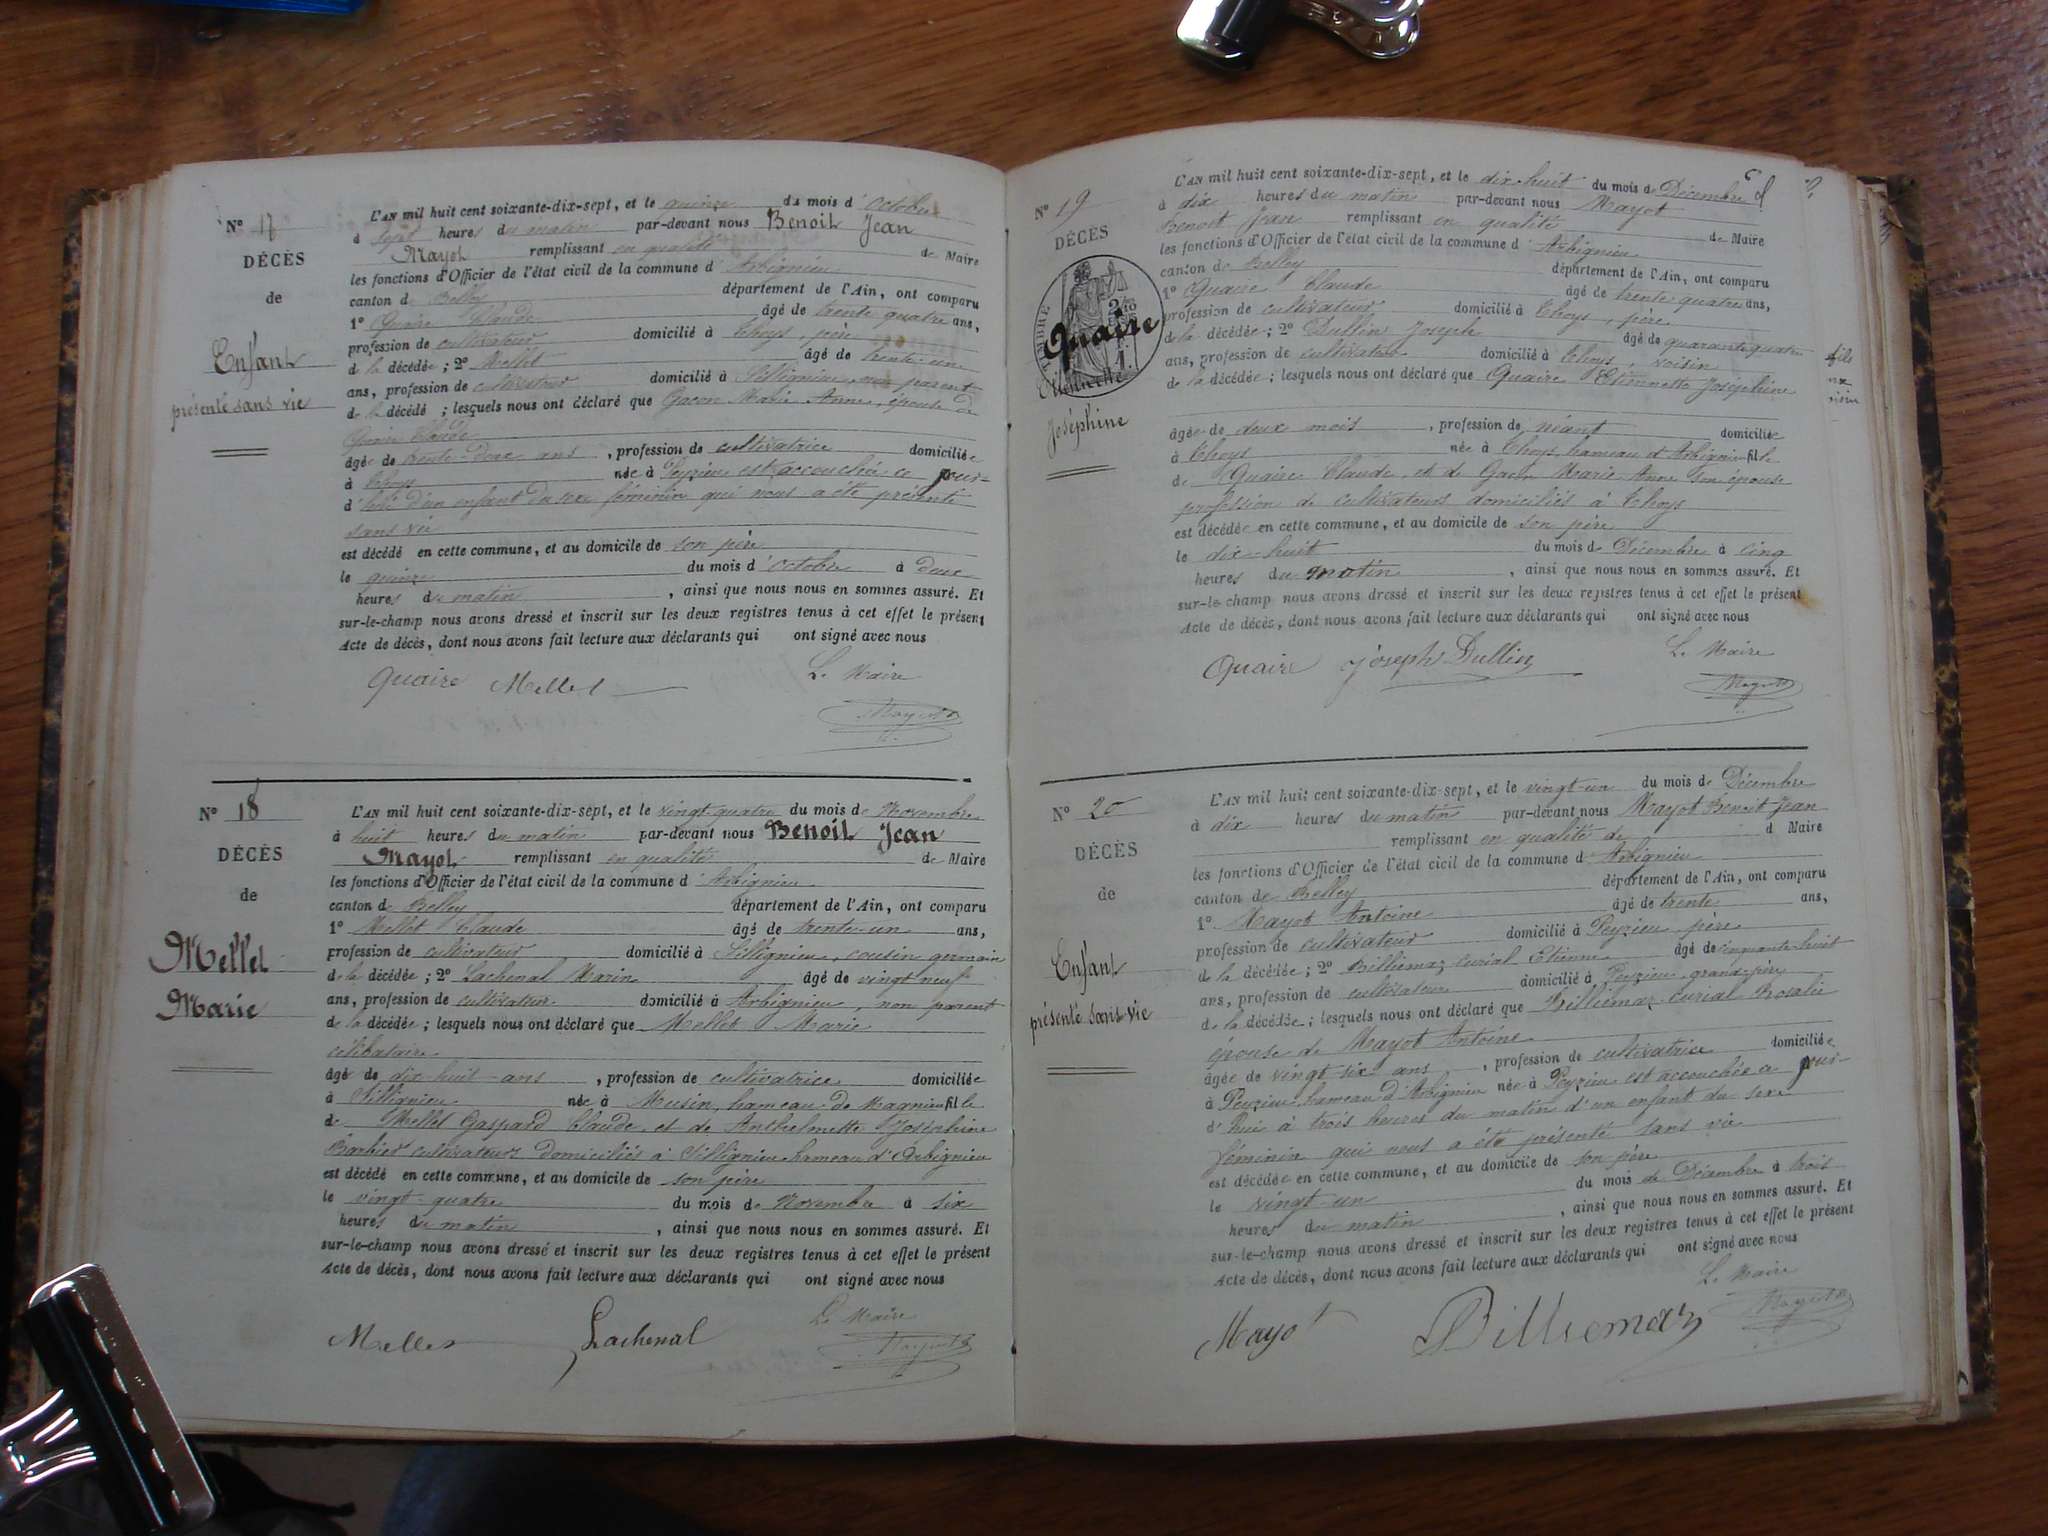 N° 17
DÉCÈS
de
Enfant
présenté sans vie
L'AN mil huit cent soixante-dix-sept, et le quinze du mois d'octobre
à sept heures du matin par-devant nous Benoit Jean
Mayot remplissant en qualité de Maire
les fonctions d'Officier de l'état civil de la commune d'Arbignieu
canton de Belley département de l'Ain, ont comparu
1° Quaire Claude âgé de trente quatre ans,
profession de cultivateur domicilié à Thoys, père
de la décédée; 2° Mellet âgé de trente-un
ans, profession de cultivateur domicilié à Sillignieu, non parent
de la décédé ; lesquels nous ont déclaré que Gacon Marie Anne, épouse de
Quaire Claude
âgée de trente-deux ans , profession de cultivatrice domiciliée
à Thoys née à Peyzieu est accouchée ce jour-
d'hui d'un enfant du sexe féminin qui nous a été présenté
sans vie
est décédé en cette commune, et au domicile de son père
le quinze du mois d'octobre à deux
heures du matin , ainsi que nous nous en sommes assuré. Et
sur-le-champ nous avons dressé et inscrit sur les deux registres tenus à cet effet le présent
Acte de décès, dont nous avons fait lecture aux déclarants qui ont signé avec nous
Quaire Mellet Le Maire
Mayot
N° 18
DÉCÈS
de
Mellet
Marie
L'AN mil huit cent soixante-dix-sept, et le vingt-quatre du mois de Novembre
à huit heures du matin par-devant nous Benoit Jean
Mayot remplissant en qualité de Maire
les fonctions d'Officier de l'état civil de la commune d'Arbignieu
canton de Belley département de l'Ain, ont comparu
1° Mellet Claude âgé de trente-un ans,
profession de cultivateur domicilié à Sillignieu, cousin germain
de la décédée; 2° Lachenal Marin âgé de vingt neuf
ans, profession de cultivateur domicilié à Arbignieu, non parent
de la décédée; lesquels nous ont déclaré que Mellet Marie
célibataire
âgé de dix-huit ans , profession de cultivatrice domiciliée
à Sillignieu née à Musin, hameau de Magnieu fille
de Mellet Gaspard Claude, et de Anthelmette Joséphine
Barbier cultivateurs domiciliés à Sillignieu hameau d'Arbignieu
est décédé en cette commune, et au domicile de son père
le vingt-quatre du mois de Novembre à six
heures du matin , ainsi que nous nous en sommes assuré. Et
sur-le-champ nous avons dressé et inscrit sur les deux registres tenus à cet effet le présent
Acte de décès, dont nous avons fait lecture aux déclarants qui ont signé avec nous
Mellet Lachenal Le Maire
Mayot
N° 19
DÉCÈS
TIMBRE
Quaire
Joséphine
L'AN mil huit cent soixante-dix-sept, et le dix-huit du mois de Décembre
à dix heures du matin par-devant nous Mayot
Benoit Jean remplissant en qualité de Maire
les fonctions d'Officier de l'état civil de la commune d'Arbignieu
canton de Belley département de l'Ain, ont comparu
1° Quaire Claude âgé de trente quatre ans,
profession de cultivateur domicilié à Thoys, père
de la décédée; 2° Dullin Joseph âgé de quarante quatre
ans, profession de cultivateur domicilié à Thoys voisin
de la décédée; lesquels nous ont déclaré que Quaire Etiennette Joséphine
âgée de deux mois , profession de néant domiciliée
à Thoys née à Thoys, hameau d'Arbignieu fille
de Quaire Claude, et de Gacon Marie Anne son épouse
profession de cultivateurs domiciliés à Thoys
est décédée en cette commune, et au domicile de son père
le dix-huit du mois de Décembre à cinq
heures du matin , ainsi que nous nous en sommes assuré. Et
sur-le-champ nous avons dressé et inscrit sur les deux registres tenus à cet effet le présent
Acte de décès, dont nous avons fait lecture aux déclarants qui ont signé avec nous
Quaire Joseph Dullin Le Maire
Mayot
N° 20
DÉCÈS
de
Enfant
présenté sans vie
L'AN mil huit cent soixante-dix-sept, et le vingt-un du mois de Décembre
à dix heures du matin par-devant nous Mayot Benoit Jean
remplissant en qualité de d Maire
les fonctions d'Officier de l'état civil de la commune d'Arbignieu
canton de Belley département de l'Ain, ont comparu
1° Mayot Antoine âgé de trente ans,
profession de cultivateur domicilié à Peyzieu, père
de la décédée; 2° Billiemaz Curial Etienne âgé de cinquante-huit
ans, profession de cultivateur domicilié à Peyzieu, grand-père
de la décédée; lesquels nous ont déclaré que Billiemaz-Curial Rosalie
épouse de Mayot Antoine
âgée de vingt six ans , profession de cultivatrice domiciliée
à Peyzieu, hameau d'Arbignieu née à Peyzieu est accouchée ce jour-
d'hui à trois heures du matin d'un enfant du sexe
féminin qui nous a été présenté sans vie
est décédée en cette commune, et au domicile de son père
le vingt-un du mois de Décembre à trois
heures du matin , ainsi que nous nous en sommes assuré. Et
sur-le-champ nous avons dressé et inscrit sur les deux registres tenus à cet effet le présent
Acte de décès, dont nous avons fait lecture aux déclarants qui ont signé avec nous
Mayot Billiemaz Le Maire
Mayot